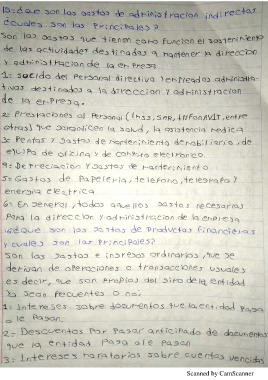 15:¿Que son los gastos de administracion indirectas
¿cuales son las Principales?
Son los gastos que tienen como funcion el sostenimiento
de las actividades destinados a mantener la direccion
y administracion de la empresa
1: sueldo del Personal directiva y empleados administra-
tivas destinados a la direccion y administracion
de la empresa.
2: Prestaciones al Personal (
otras) que garanticen la salud, la asistencia medica
3: Rentas y gastos de mantenimiento del mobiliario, de
equipo de oficina y de computo electronico.
4: Depreciacion y gastos de mantenimiento
5: Gastos de Papeleria, telefono, telegrafo y
energia electrica
6: En general, todos aquellos gastos necesarias
Para la direccion y administracion de la empresa
¿que son los gastos de Productos financieras
y cuales son las Principales?
Son las gastos e ingresos ordinarios, que se
derivan de operaciones o transacciones usuales
es decir, que son propias del giro de la entidad
ya sean frecuentes o no:
1: Intereses sobre documentos que la entidad Paga
o le Pagan.
2- Descuentos Por Pago anticipado de documentos
que la entidad Paga o le Pagan
3: Intereses moratorios sobre cuentas vencidas
Scanned by CamScanner